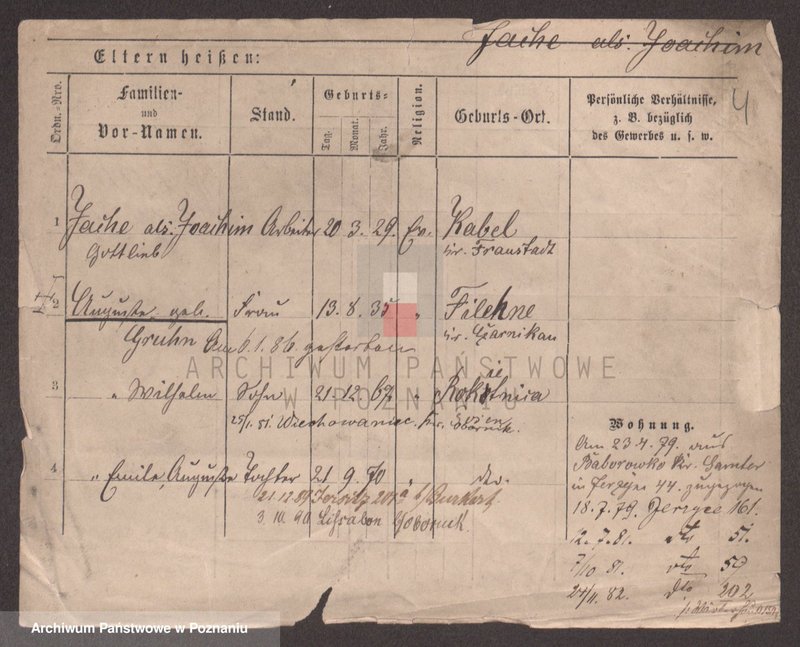 Jache als. Joachim
Eltern heißen:
4
Ordn.-Nro.
Familien-
und
Vor-Namen.
Stand.
Geburts-
Tag.
Monat.
Jahr.
Religion.
Geburts-Ort.
Persönliche Verhältnisse,
z. B. bezüglich
des Gewerbes u. s. w.
1 Jache als. Joachim Arbeiter 20 3. 29. Ev. Kabel
Gottlieb Kr. Fraustadt
2 Auguste geb. Frau 13. 8. 35 " Filehne
Gruhn Am 6.1.86. gestorben Kr. Czarnikau
3 " Wilhelm Sohn 21. 12. 69 " Rokietnica
25/1. 81. Kr.
4 " Emilie, Auguste Tochter 21 9. 70 " dto.
21.12 89 Jersitz
3. 10. 90
Wohnung.
Am 23.4.79. aus
Baborowko Kr. Samter
in Jerzyce 44. zugezogen
18.7.79. Jerzyce 161.
12.7.81. dto 51.
7/10 81. dto 50
24/4. 82. dto 202
ARCHIWUM PAŃSTWOWE
W POZNANIU
Archiwum Państwowe w Poznaniu